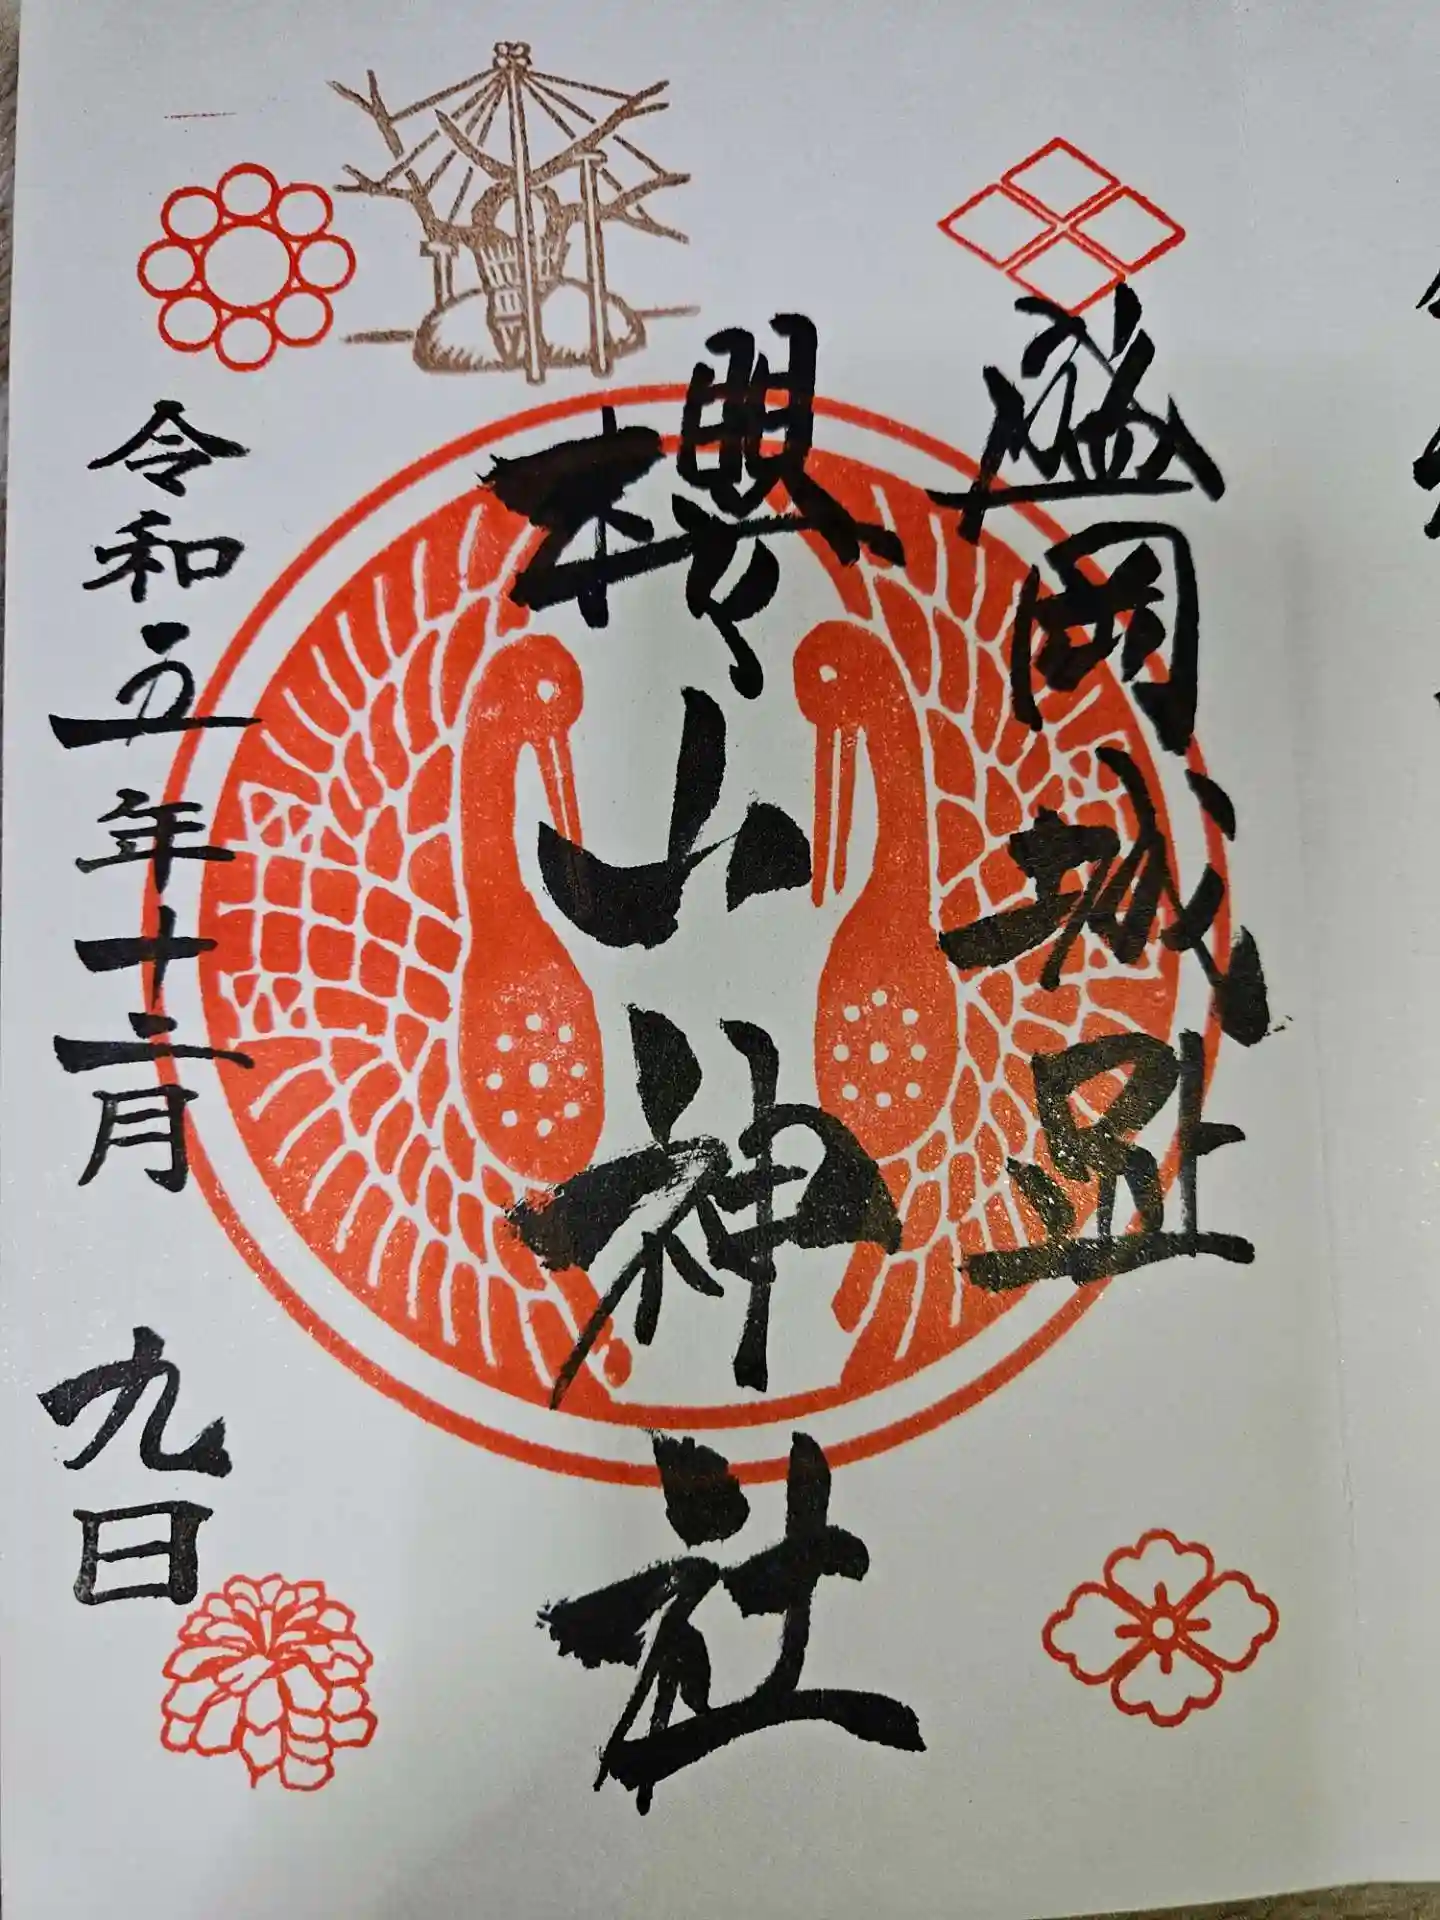 盛岡城跡
櫻山神社
令和五年十二月九日